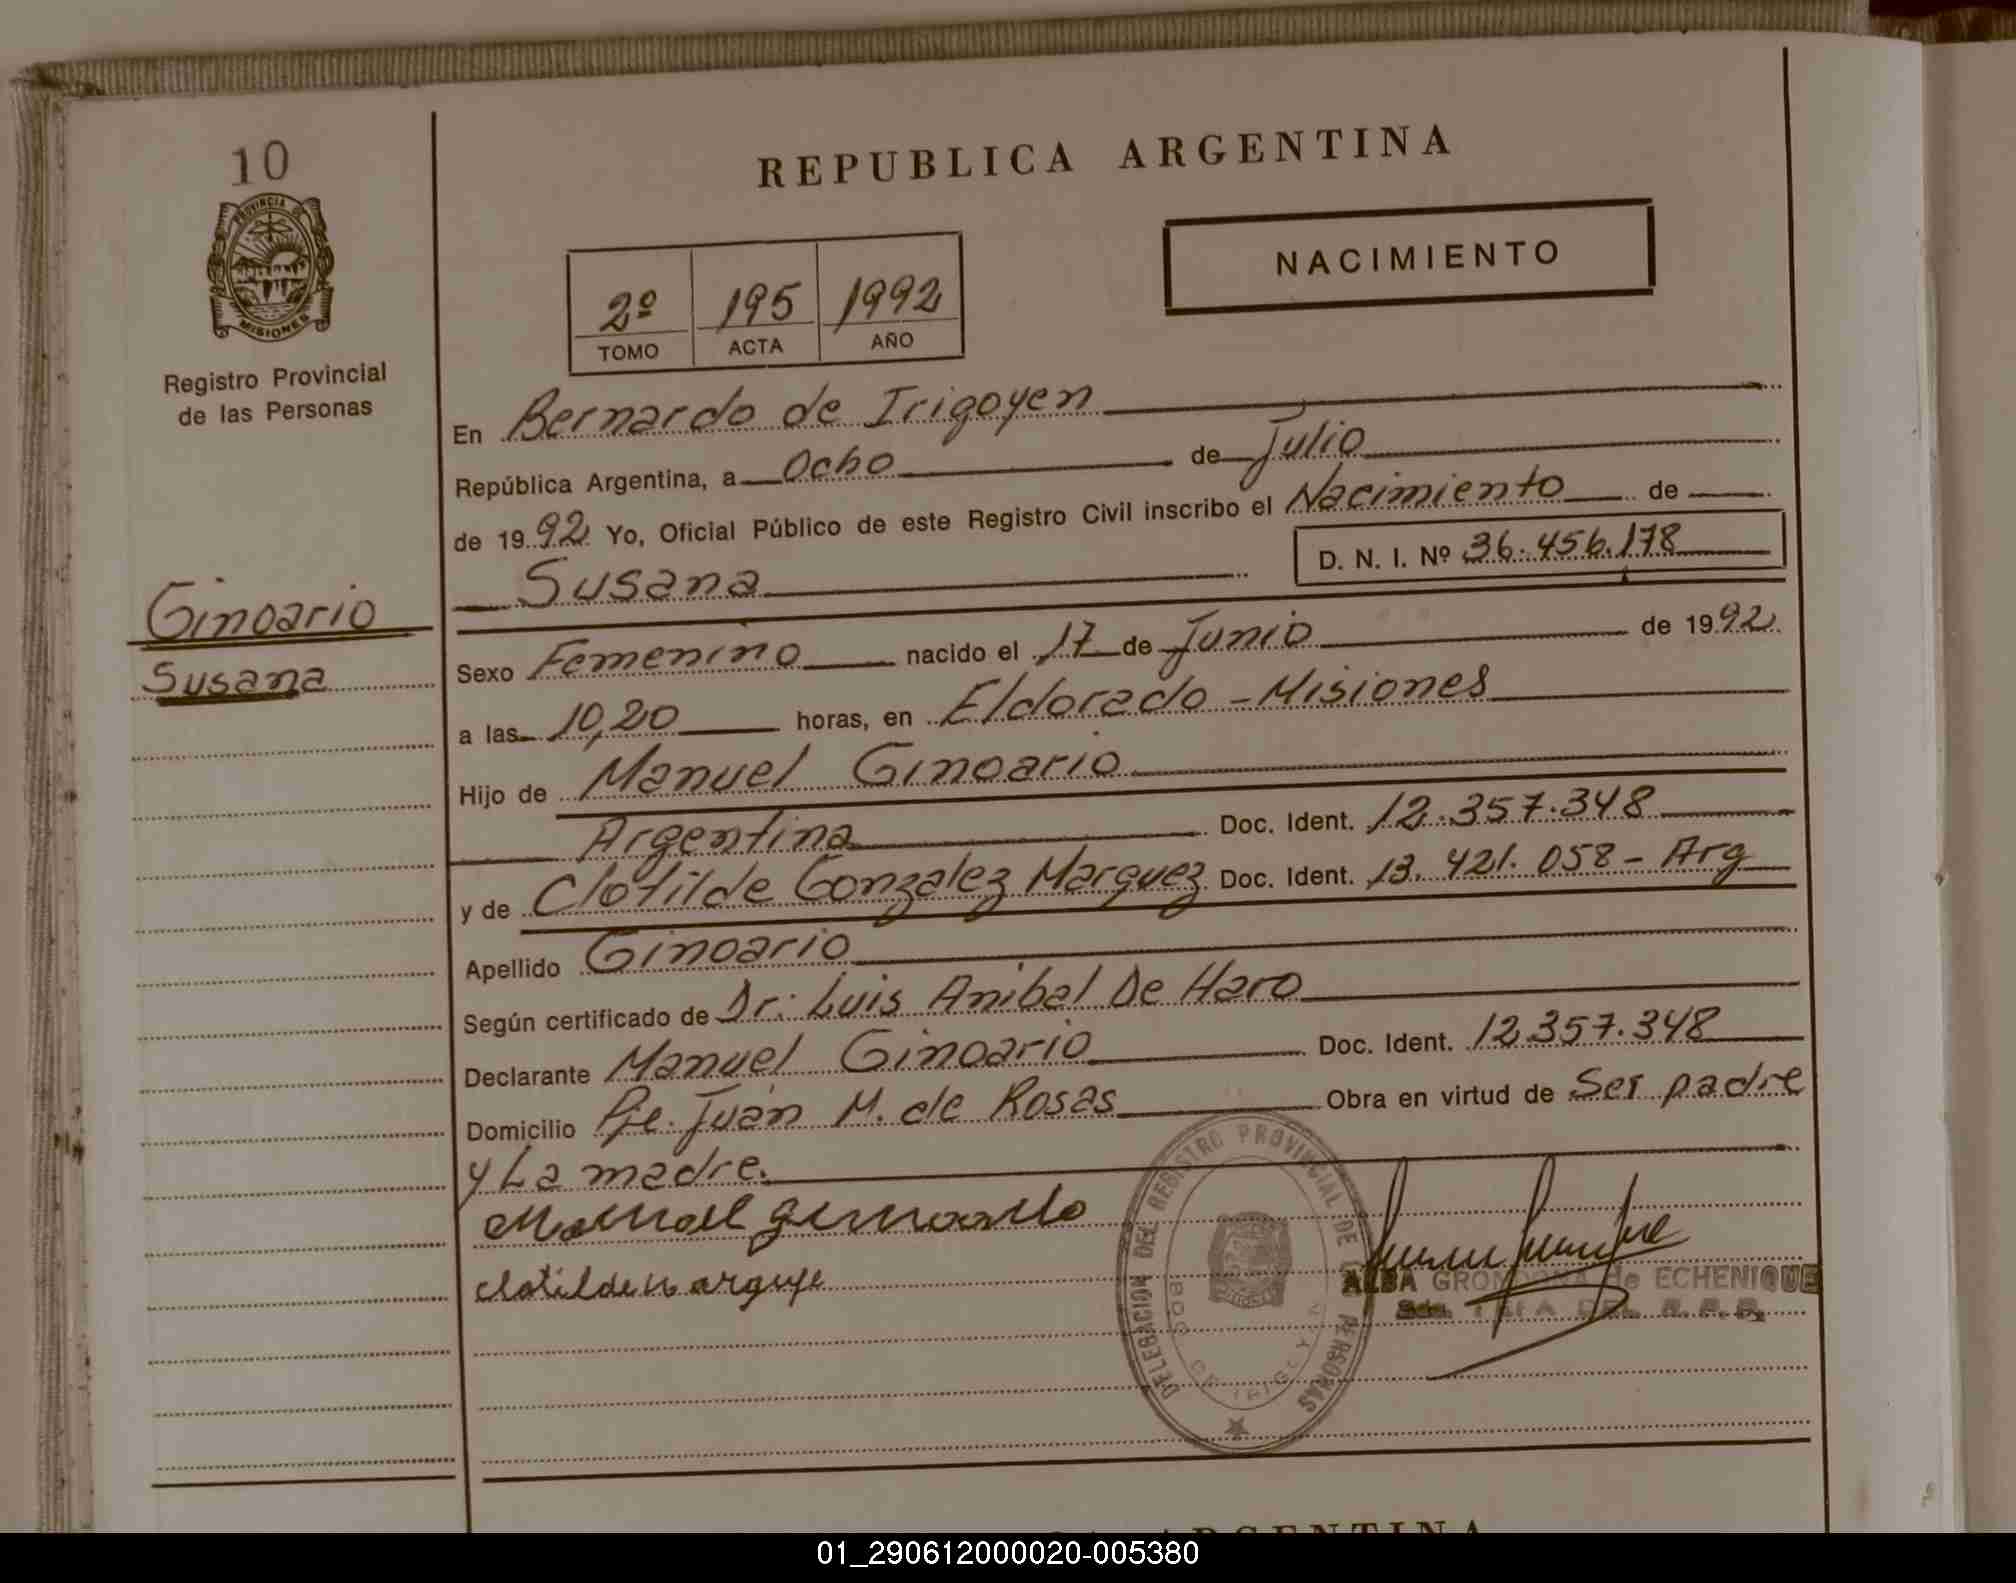 10
PROVINCIA DE
MISIONES
Registro Provincial
de las Personas
Ginoario
Susana
REPUBLICA ARGENTINA
NACIMIENTO
2º 195 1992
TOMO ACTA AÑO
En Bernardo de Irigoyen
República Argentina, a Ocho de Julio
de 1992 Yo, Oficial Público de este Registro Civil inscribo el Nacimiento de
Susana D. N. I. Nº 36.456.178
Sexo Femenino nacido el 17 de Junio de 1992
a las 10,20 horas, en Eldorado - Misiones
Hijo de Manuel Ginoario
Argentina Doc. Ident. 12.357.348
y de Clotilde Gonzalez Marquez Doc. Ident. 13.421.058 - Arg
Apellido Ginoario
Según certificado de Dr. Luis Anibal De Haro
Declarante Manuel Ginoario Doc. Ident. 12357.348
Domicilio Pje. Juan M. de Rosas Obra en virtud de Ser padre
y La madre.
DELEGACION DEL REGISTRO PROVINCIAL DE PERSONAS
ALBA GRONDONA de ECHENIQUE
ARGENTINA
01_290612000020-005380